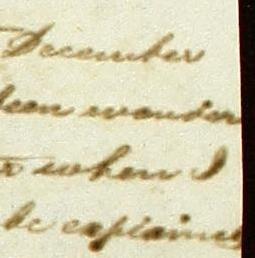 December
been wonder
when I
be explained